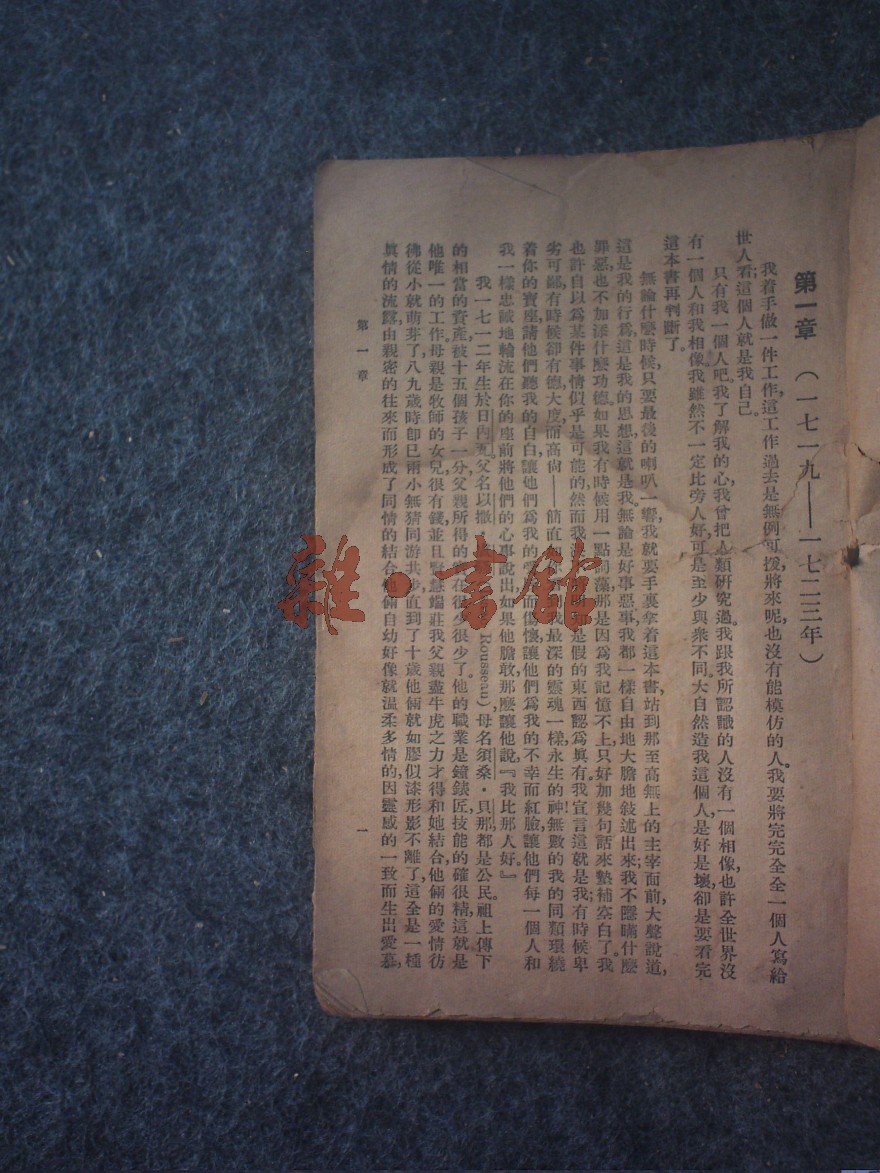 第一章　（一七一九——一七二三年）
我着手做一件工作，這工作過去是無例可援，將來呢，也沒有能模仿的人。我要將完完全全一個人寫給
世人看；這個人就是我自己。
只有我一個人吧。我了解我的心，我曾把人類研究過。我跟我所認識的人沒有一個相像，也許全世界沒
有一個人和我相像。我雖然不一定比旁人好，可是至少與衆不同。大自然造我這個人，是好是壞，卻是要看完
這本書再判斷了。
無論什麼時候，只要最後的喇叭一響，我就要手裏拿着這本書，站到那至高無上的主宰面前，大聲說道，
這是我的行爲，這是我的思想，這就是我。無論是好事惡事，我都一樣自由地大膽地敍述出來；我不隱瞞什麼
罪惡，也不加添什麼功德。如果我有時候用一點詞藻，那是因爲我記憶不上，只好加幾句話來墊補空白了。我
也許自以爲某件事情似乎是可能的，然而我 是假的東西認爲眞有。我宣言這就是我；有時候卑
劣可鄙，有時候卻有德大度而高尙——簡直 到我最深的靈魂一樣，永生的神！無數的我的同類環繞
着你的寶座，請他們聽我的自白，讓她們爲我的 而傷懷，讓他們爲我的不幸而紅臉，讓他們每一個人和
我一樣忠誠地輪流在你的座前將他們的心事說出，如果他膽敢，那麼讓他說『我比那人好。』
我一七一二年生於日內瓦。父名以撒 Rousseau)，母名須桑·貝那，都是公民。祖上傳下
的相當的資產，被十五個孩子一分，父親所得的 在很少很少了。他的職業是鐘錶匠，技能的確很精，這就是
他唯一的工作。母親是牧師的女兒，很有錢，並且賢慧端莊，我父親盡牛虎之力才得和她結合。他倆的愛情彷
彿從小就萌芽了，八九歲時卽已兩小無猜，同游共步，直到了十歲，他倆就如膠似漆，形影不離了，這全是一種
眞情的流露，由親密的往來而形成了同情的結合。他倆自幼好像就温柔多情的，因靈感的一致而生出愛慕，
第一章
一
雜·書館